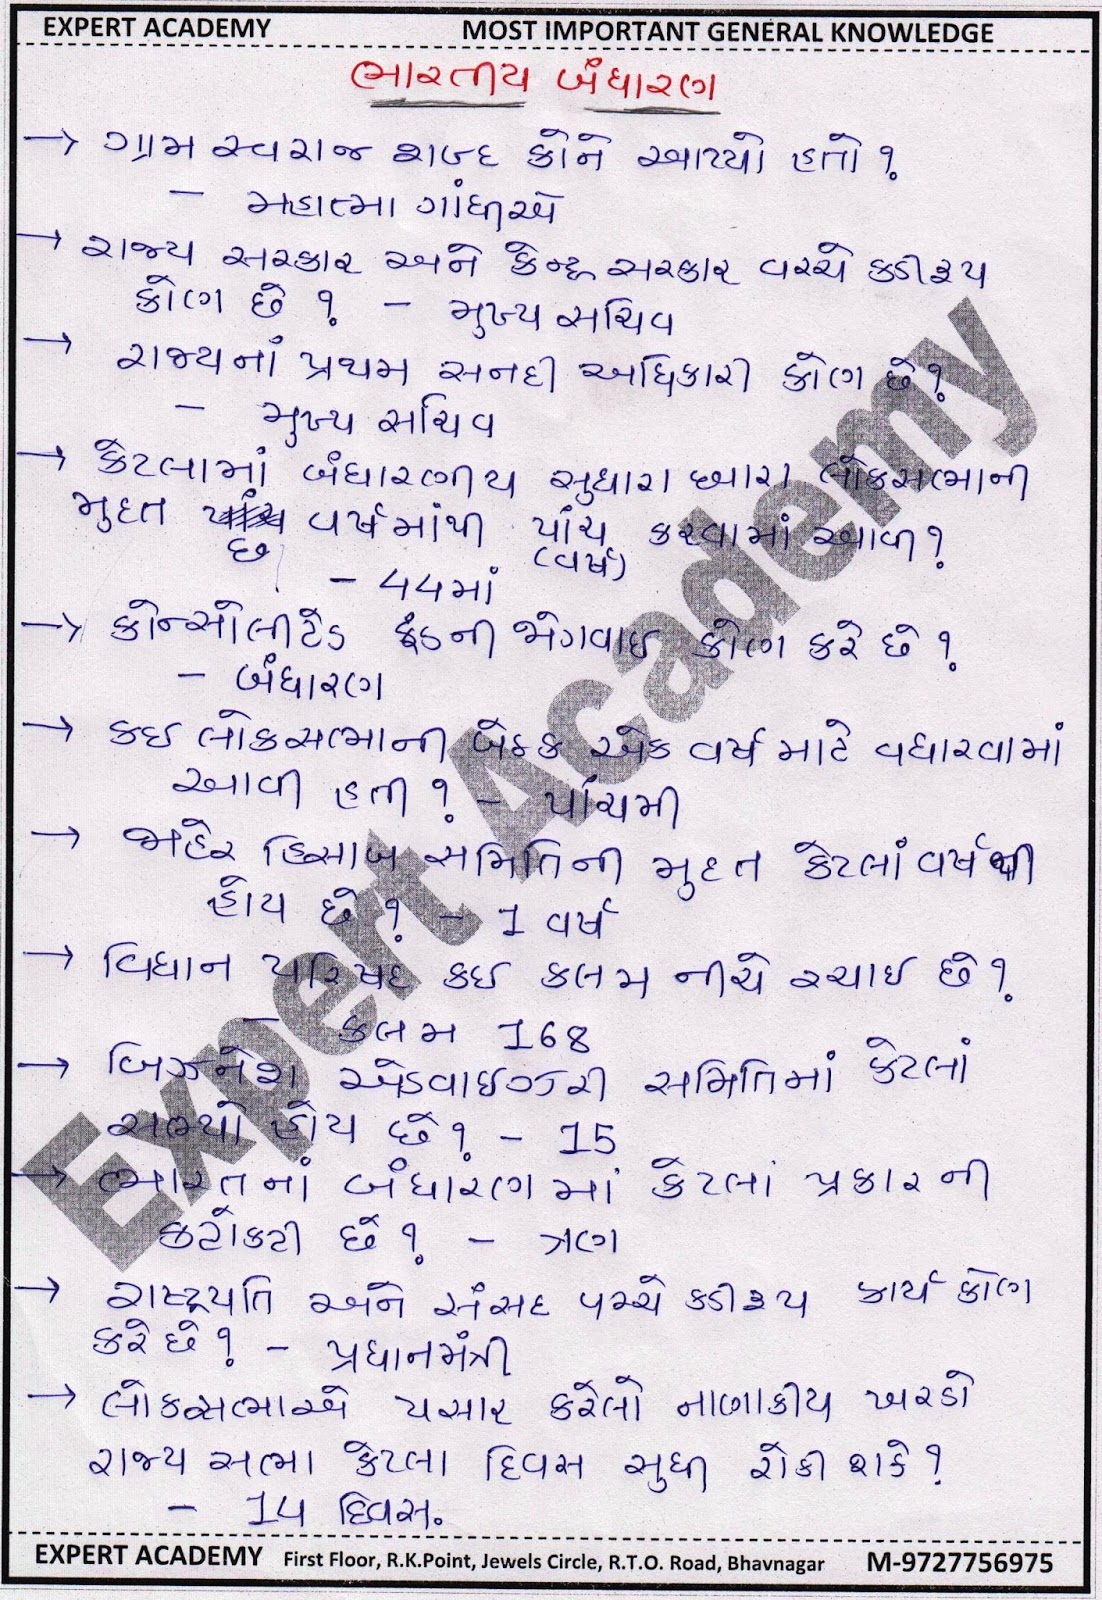 EXPERT ACADEMY MOST IMPORTANT GENERAL KNOWLEDGE
ભારતીય બંધારણ
→ ગ્રામ સ્વરાજ શબ્દ કોને આપ્યો હતો ?
- મહાત્મા ગાંધીએ
→ રાજ્ય સરકાર અને કેન્દ્ર સરકાર વચ્ચે કડીરૂપ
કોણ છે ? - મુખ્ય સચિવ
→ રાજ્યનાં પ્રથમ સનદી અધિકારી કોણ છે ?
- મુખ્ય સચિવ
→ કેટલામાં બંધારણીય સુધારા દ્વારા લોકસભાની
મુદત છ વર્ષમાંથી પાંચ (વર્ષ) કરવામાં આવી ?
- 44માં
→ કોન્સોલીટેડ ફંડની જોગવાઇ કોણ કરે છે ?
- બંધારણ
→ કઇ લોકસભાની બેઠક એક વર્ષ માટે વધારવામાં
આવી હતી ? - પાંચમી
→ જાહેર હિસાબ સમિતિની મુદત કેટલાં વર્ષની
હોય છે ? - 1 વર્ષ
→ વિધાન પરિષદ કઇ કલમ નીચે રચાઇ છે ?
- કલમ 168
→ બિઝનેશ એડવાઇઝરી સમિતિમાં કેટલાં
સભ્યો હોય છે ? - 15
→ ભારતનાં બંધારણમાં કેટલાં પ્રકારની
કટોકટી છે ? - ત્રણ
→ રાષ્ટ્રપતિ અને સંસદ વચ્ચે કડીરૂપ કાર્ય કોણ
કરે છે ? - પ્રધાનમંત્રી
→ લોકસભાએ પસાર કરેલો નાણાકીય ખરડો
રાજ્ય સભા કેટલા દિવસ સુધી રોકી શકે ?
- 14 દિવસ.
Expert Academy
EXPERT ACADEMY First Floor, R.K.Point, Jewels Circle, R.T.O. Road, Bhavnagar M-9727756975